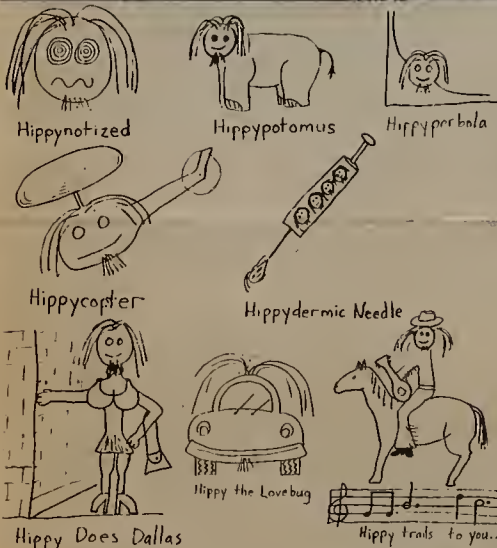 Hippynotized
Hippypotomus
Hippyperbola
Hippycopter
Hippydermic Needle
Hippy Does Dallas
Hippy the Lovebug
Hippy trails to you...